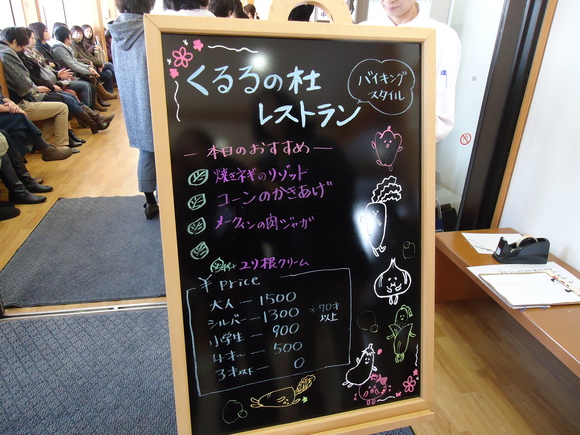 くるるの杜
レストラン
バイキング
スタイル
本日のおすすめ
焼きネギのリゾット
コーンのかきあげ
メークインの肉ジャガ
ユリ根クリーム
¥ Price
大人 — 1500
シルバー — 1300 ※70才以上
小学生 — 900
4才〜 — 500
3才以下 — 0